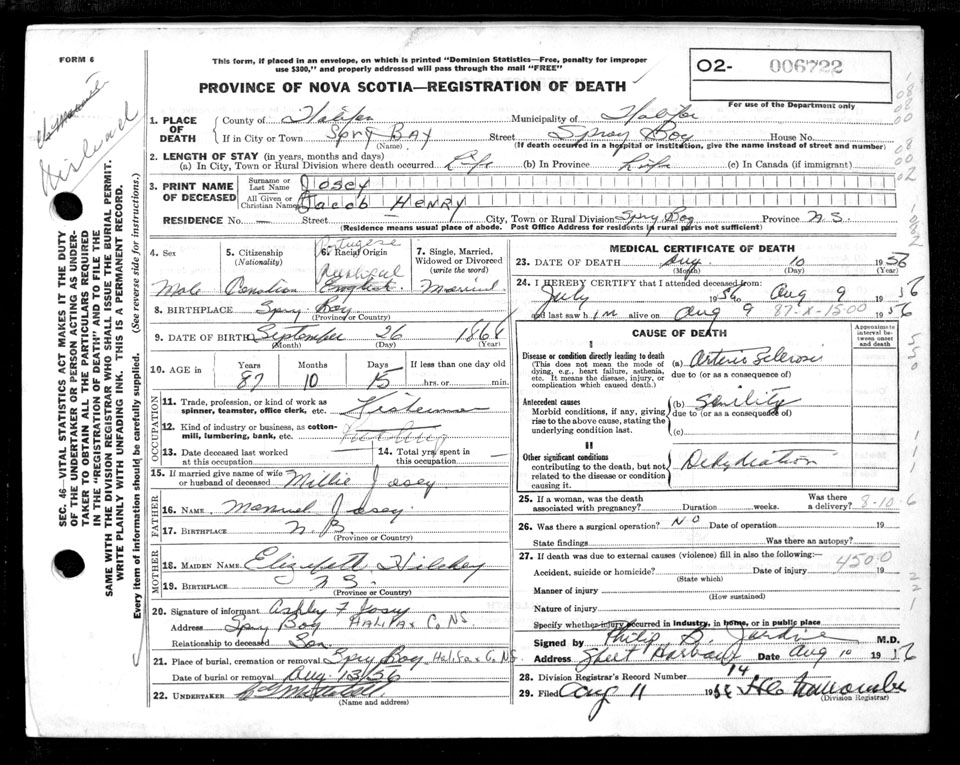 FORM 6
This form, if placed in an envelope, on which is printed "Dominion Statistics—Free, penalty for improper
use $300," and properly addressed will pass through the mail "FREE"
PROVINCE OF NOVA SCOTIA—REGISTRATION OF DEATH
O2- 006722
For use of the Department only
SEC. 46—VITAL STATISTICS ACT MAKES IT THE DUTY
OF THE UNDERTAKER OR PERSON ACTING AS UNDER-
TAKER TO OBTAIN ALL THE PARTICULARS REQUIRED
IN THE "REGISTRATION OF DEATH" AND TO FILE THE
SAME WITH THE DIVISION REGISTRAR WHO SHALL ISSUE THE BURIAL PERMIT.
WRITE PLAINLY WITH UNFADING INK. THIS IS A PERMANENT RECORD.
Every item of information should be carefully supplied. (See reverse side for instructions.)
1. PLACE OF DEATH
County of Halifax Municipality of Halifax
If in City or Town Spry BAY Street Spry Bay House No.
(Name) (If death occurred in a hospital or institution, give the name instead of street and number)
2. LENGTH OF STAY (in years, months and days)
(a) In City, Town or Rural Division where death occurred Life (b) In Province Life (c) In Canada (if immigrant)
3. PRINT NAME OF DECEASED
Surname or Last Name Josey
All Given or Christian Names Jacob Henry
RESIDENCE No. — Street City, Town or Rural Division Spry Bay Province N.S.
(Residence means usual place of abode. Post Office Address for residents in rural parts not sufficient)
4. Sex
Male
5. Citizenship
(Nationality)
Canadian
6. Racial Origin
Portugese
English
7. Single, Married,
Widowed or Divorced
(write the word)
Married
8. BIRTHPLACE Spry Bay
(Province or Country)
9. DATE OF BIRTH September 26 1868
(Month) (Day) (Year)
10. AGE in
Years Months Days If less than one day old
87 10 15 hrs. or min.
OCCUPATION
11. Trade, profession, or kind of work as
spinner, teamster, office clerk, etc. Fisherman
12. Kind of industry or business, as cotton-
mill, lumbering, bank, etc. Fishing
13. Date deceased last worked
at this occupation —
14. Total yrs. spent
in this occupation —
15. If married give name of wife
or husband of deceased Millie Josey
FATHER
16. NAME Manuel Josey
17. BIRTHPLACE N.B.
(Province or Country)
MOTHER
18. MAIDEN NAME Elizabeth Hilchey
19. BIRTHPLACE N.S.
(Province or Country)
20. Signature of informant Ashley F Josey
Address Spry Bay HALIFAX Co NS
Relationship to deceased Son
21. Place of burial, cremation or removal Spry Bay Halifax Co. NS
Date of burial or removal Aug 13/56
22. UNDERTAKER
(Name and address)
MEDICAL CERTIFICATE OF DEATH
23. DATE OF DEATH Aug. 10 1956
(Month) (Day) (Year)
24. I HEREBY CERTIFY that I attended deceased from:
July 1956 to Aug 9 1956
and last saw him alive on Aug 9 1956
87-X-1500
CAUSE OF DEATH
Approximate
interval be-
tween onset
and death
I
Disease or condition directly leading to death
(This does not mean the mode of
dying, e.g., heart failure, asthenia,
etc. It means the disease, injury, or
complication which caused death.)
(a) Arterio Sclerosis
due to (or as a consequence of)
Antecedent causes
Morbid conditions, if any, giving
rise to the above cause, stating the
underlying condition last.
(b) Senility
due to (or as a consequence of)
(c)
II
Other significant conditions
contributing to the death, but not
related to the disease or condition
causing it.
Dehydration
25. If a woman, was the death
associated with pregnancy? Duration weeks. Was there a delivery?
8-10-6
26. Was there a surgical operation? NO Date of operation 19
State findings Was there an autopsy?
27. If death was due to external causes (violence) fill in also the following:
4500
Accident, suicide or homicide? Date of injury 19
(State which)
Manner of injury
(How sustained)
Nature of injury
Specify whether injury occurred in industry, in home, or in public place
Signed by Philip B. Jardine M.D.
Address Sheet Harbour Date Aug 10 1956
28. Division Registrar's Record Number 14
29. Filed Aug 11 1956
(Division Registrar)